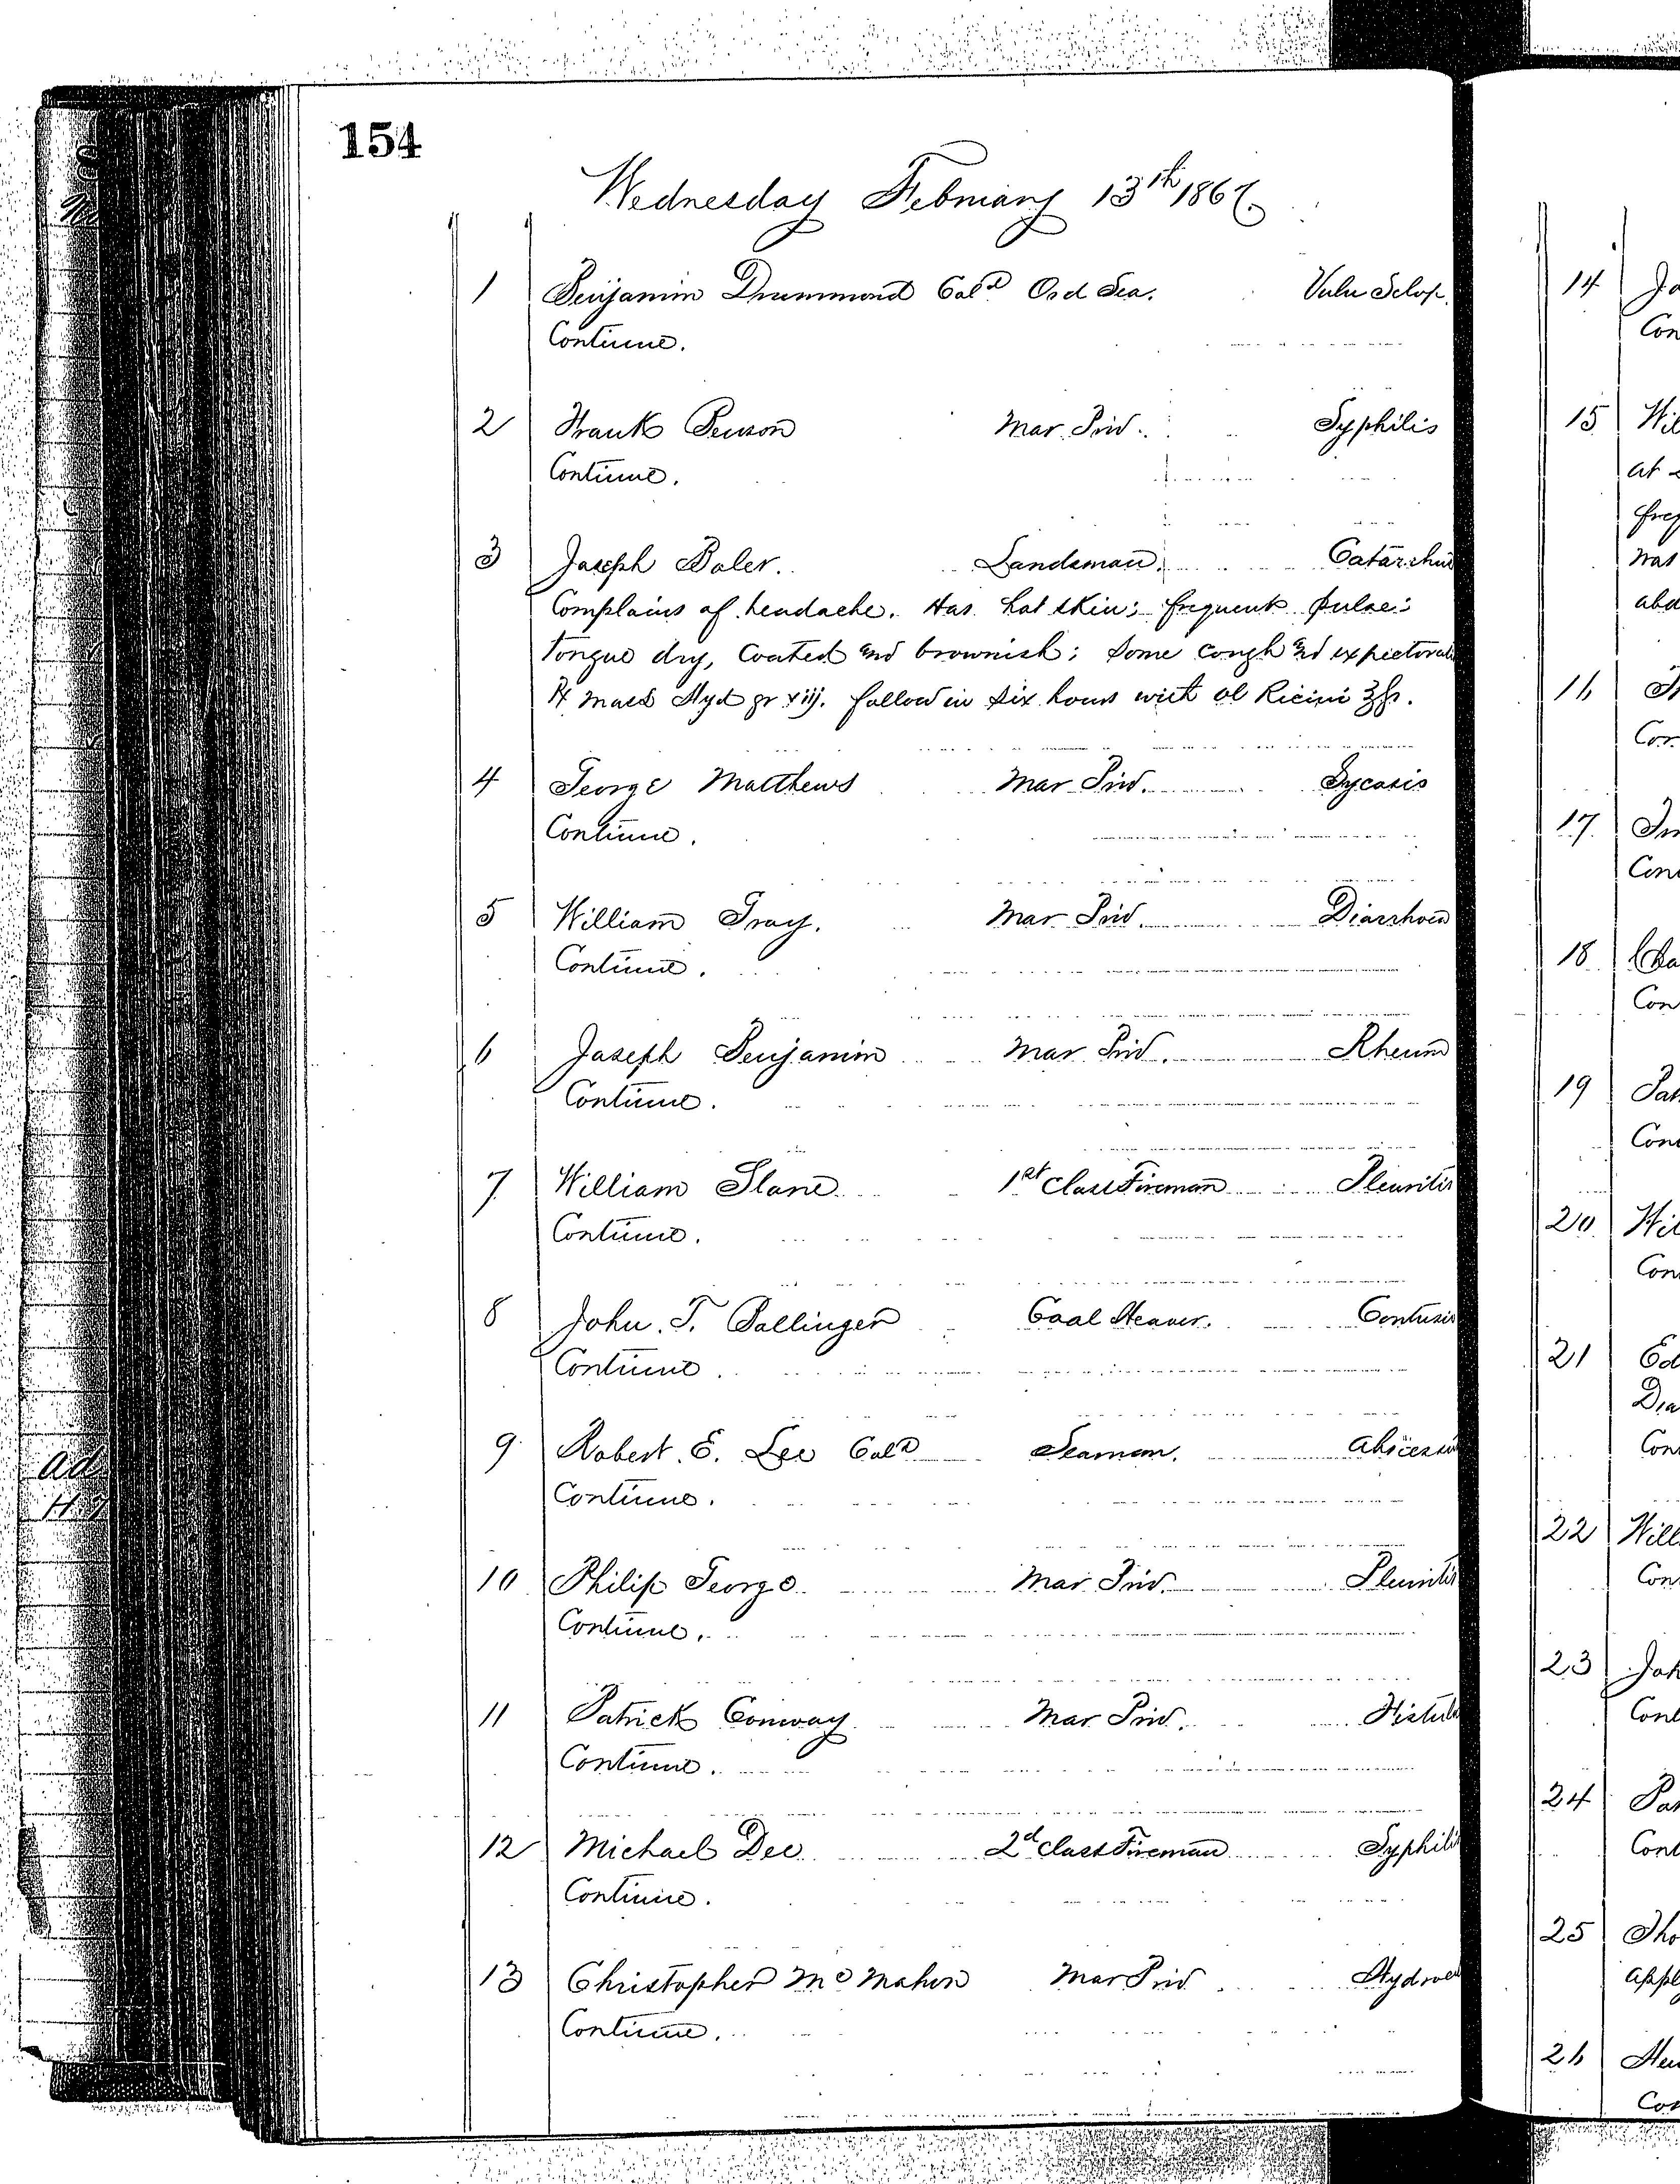 154
Wednesday February 13th 1867.
1 Benjamin Drummond Cold Ord Sea. Vuln Sclop.
Continue.
2 Frank Benson Mar Priv. Syphilis
Continue.
3 Joseph Boler. Landsman. Catarrhus
Complains of headache. Has hot skin; frequent pulse;
tongue dry, coated and brownish; some cough and expectorat
℞ Mass Hyd gr xiij. follow in six hours with ol Ricini ℥fs.
4 George Matthews Mar Priv. Sycosis
Continue.
5 William Gray. Mar Priv. Diarrhoea
Continue.
6 Joseph Benjamin Mar Priv. Rheum
Continue.
7 William Slane 1st Class Fireman Pleuritis
Continue.
8 John. T. Ballinger Coal Heaver. Contusio
Continue.
9 Robert. E. Lee Cold Seaman. Abscessu
Continue.
10 Philip George Mar Priv. Pleuritis
Continue.
11 Patrick Conway Mar Priv. Fistula
Continue.
12 Michael Dee 2d Class Fireman Syphilis
Continue.
13 Christopher McMahon Mar Priv Hydroce
Continue.
14 Jo
Con
15 Wil
at
freq
was
abd
16
Con
17 Im
Con
18 Cha
Con
19
Con
20 Wil
Con
21 Ed
Dia
Con
22 Will
Con
23 Joh
Cont
24 Pa
Cont
25 Tho
apply
26 Hen
Con